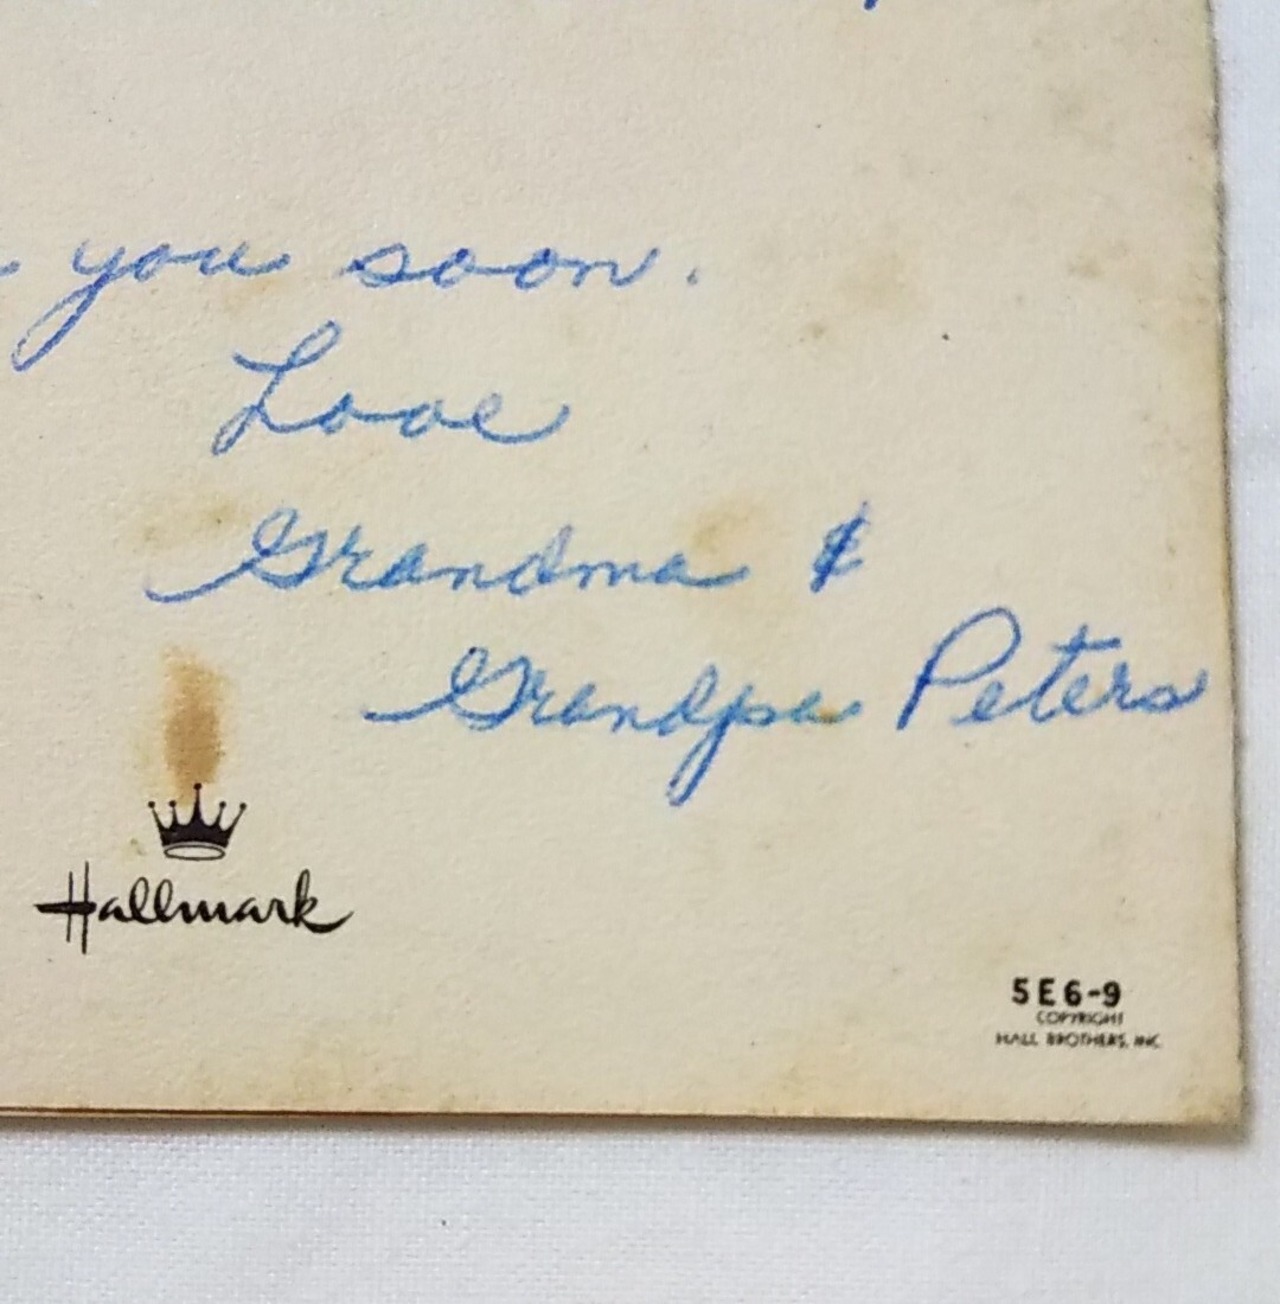 you soon.
Love
Grandma &
Grandpa Peters
Hallmark
5E6-9
COPYRIGHT
HALL BROTHERS, INC.